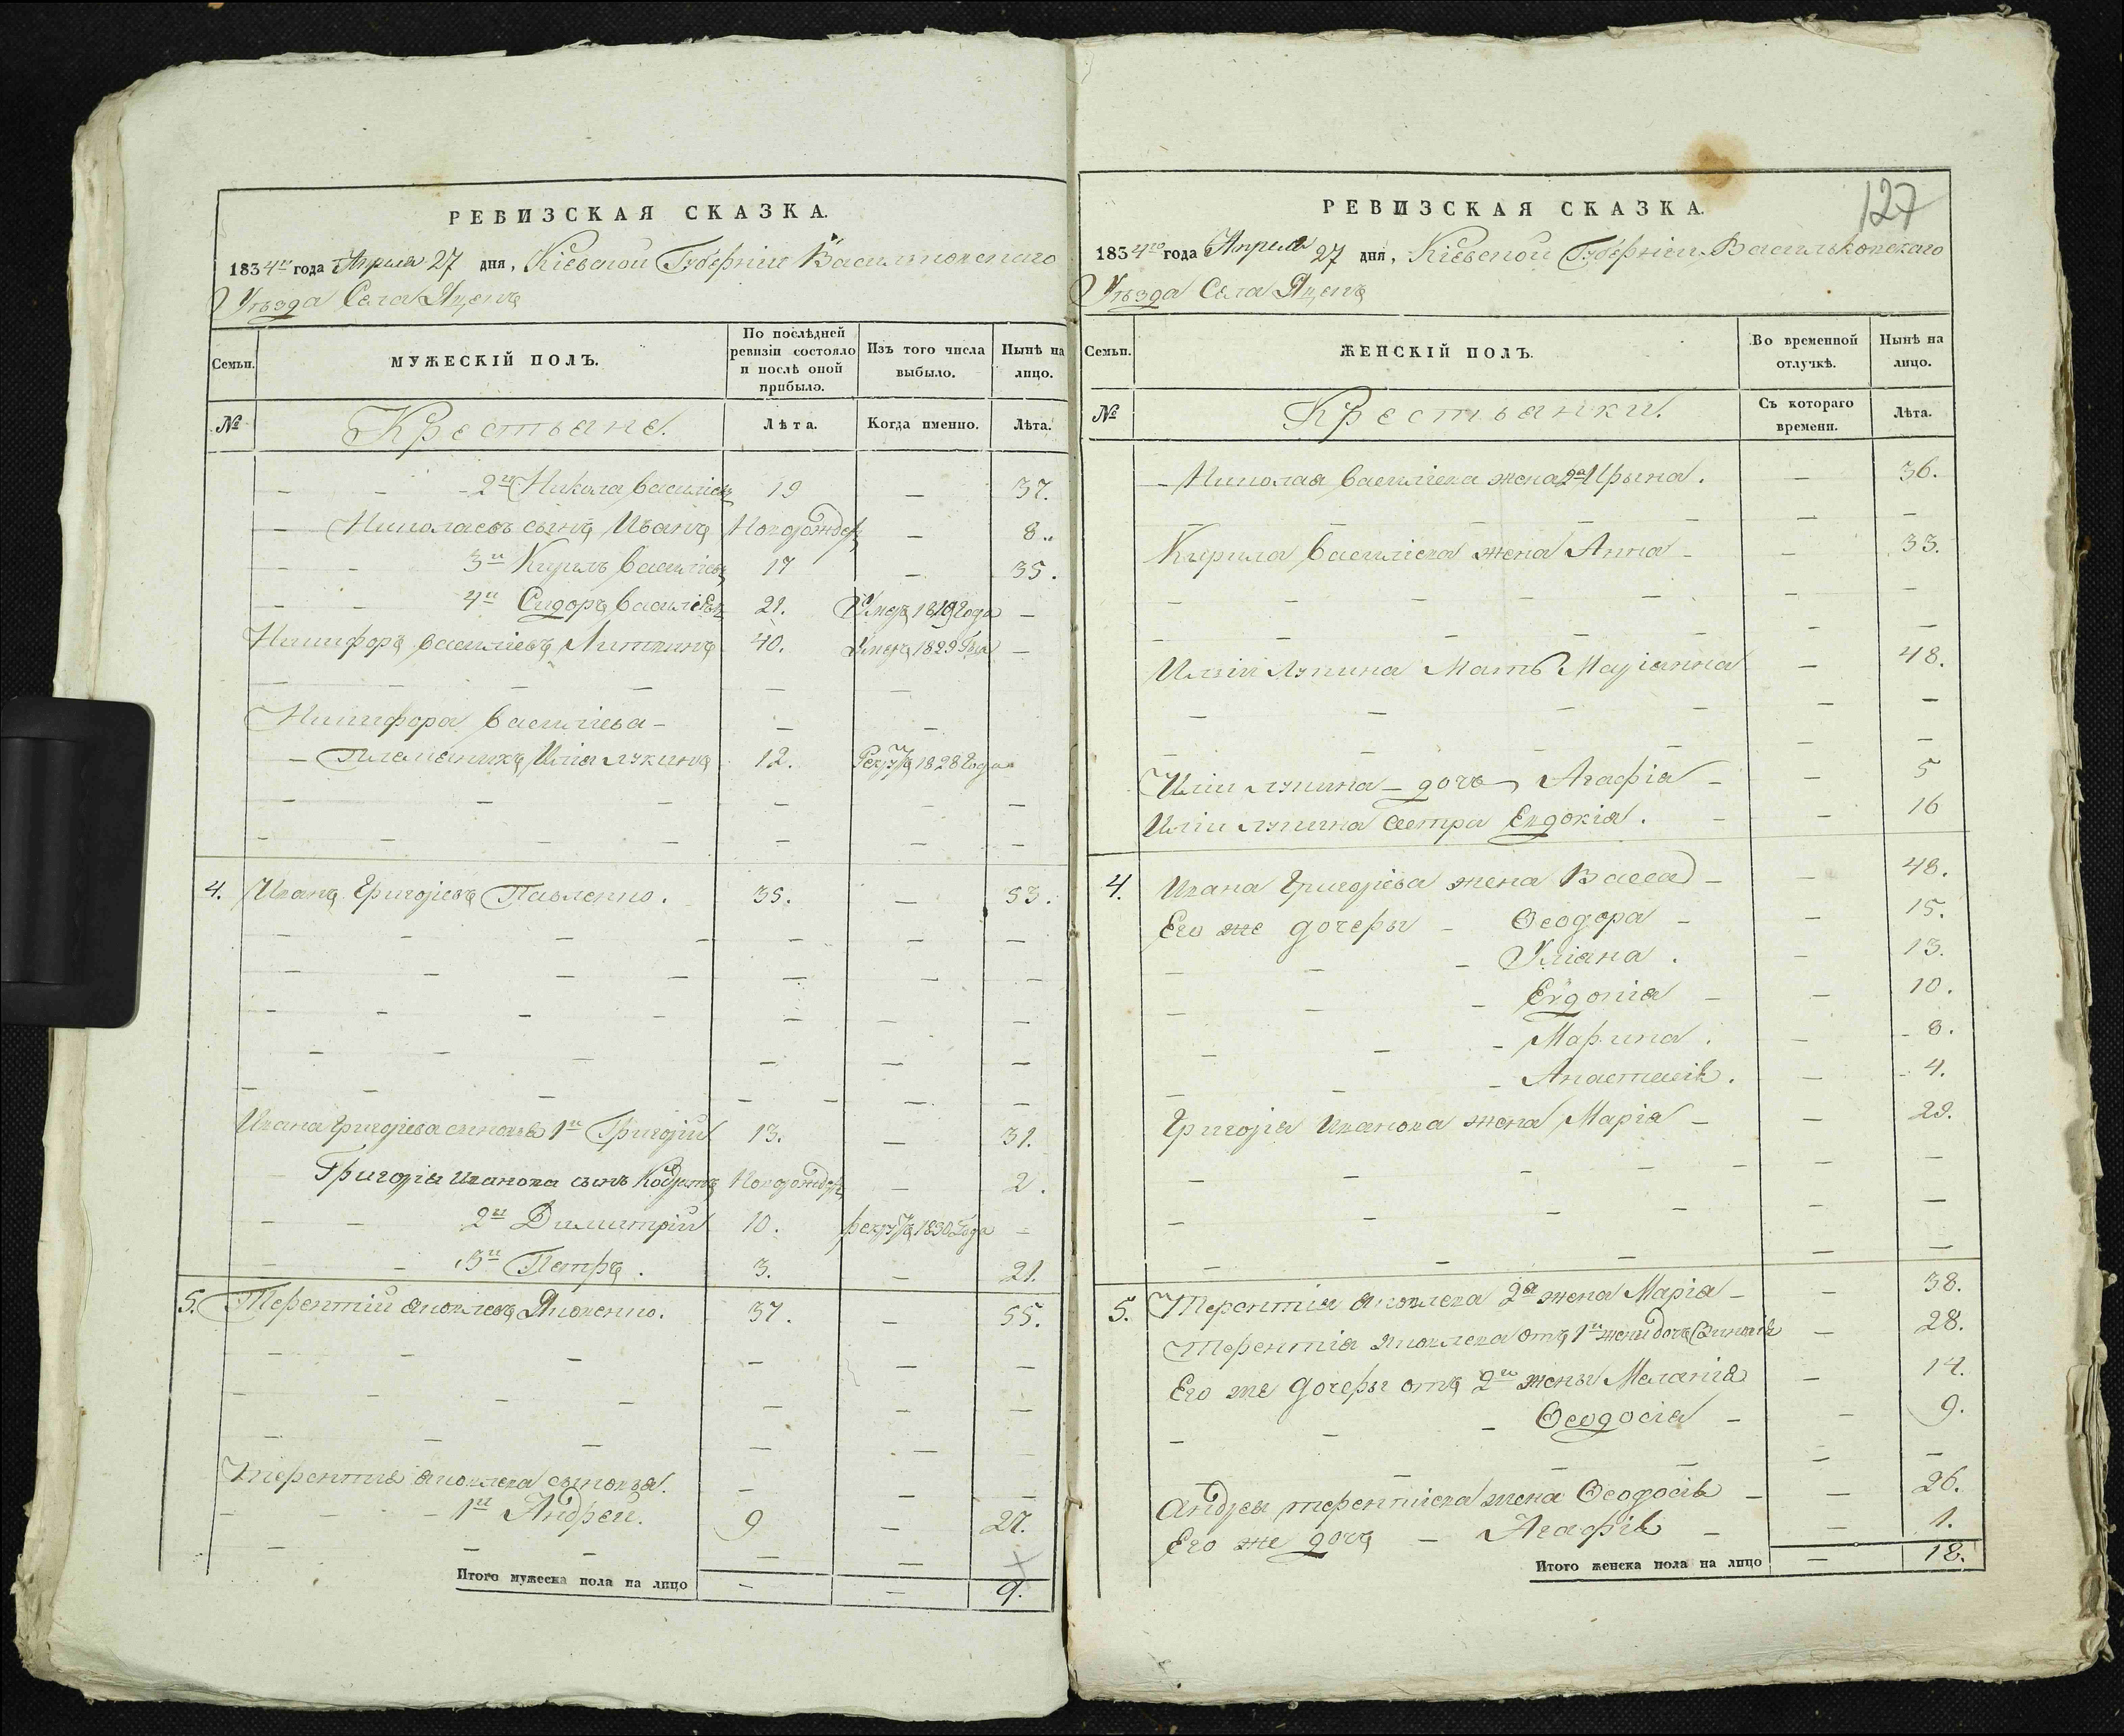 РЕВИЗСКАЯ СКАЗКА.
1834го года Апреля 27 дня, Кіевской Губерніи Васильковскаго
Уѣзда Села Яцекъ
Семьи.
МУЖЕСКІЙ ПОЛЪ.
По послѣдней ревизіи состояло и послѣ оной прибыло.
Изъ того числа выбыло.
Нынѣ на лицо.
№
Крестьяне.
Лѣта.
Когда именно.
Лѣта.
2й Никола Василіевъ 19 — 37.
Николаевъ сынъ Иванъ Новорожден — 8.
3й Кирилъ Василіевъ 17 — 35.
4й Сидоръ Василіевъ 21. Умеръ 1819 Года —
Никифоръ Василіевъ 40. Умеръ 1829 Года —
Никифора Василіева —
Племеникъ Иліа Лукинъ 12. Рекрутъ 1828 Года
4. Иванъ Григоріевъ Павленко. 35. — 53.
Ивана Григоріева сыновья 1й Григорій 13. — 31.
Григорія Иванова сынъ Кодратъ Новорожден — 2.
2й Димитрій 10. рекрутъ 1830 Года —
3й Петръ. 3. — 21.
5. Терентій Яковлевъ Яковенко. 37. — 55.
Терентія Яковлева сыновья.
1й Андрей. 9 — 27.
Итого мужеска пола на лицо — — 9.
РЕВИЗСКАЯ СКАЗКА.
127
1834го года Апреля 27 дня, Кіевской Губерніи Васильковскаго
Уѣзда Села Яцекъ
Семьи.
ЖЕНСКІЙ ПОЛЪ.
Во временной отлучкѣ.
Нынѣ на лицо.
№
Крестьянки.
Съ котораго времени.
Лѣта.
Николая Василіева жена 2я Ирына. — 36.
Кирила Василіева жена Анна — — 33.
Иліи Лукина Мать Маріанна — 48.
Иліи Лукина — дочь Агафіа — — 5
Иліи Лукина сестра Евдокіа. — 16
4. Ивана Григоріева жена Васса — — 48.
Его же дочеры — Ѳеодора — — 15.
Уліана. — 13.
Евдокіа — — 10.
Марина. — 8.
Анастасія. — 4.
Григорія Иванова жена Маріа — — 29.
5. Терентія Яковлева 2я жена Маріа — — 38.
Терентія Яковлева отъ 1й жени дочь — 28.
Его же дочеры отъ 2й жены Меланія — 14.
Ѳеодосіа — — 9.
Андрея Терентіева жена Ѳеодосія — — 26.
Его же дочъ — Агафія — — 1.
Итого женска пола на лицо — 18.